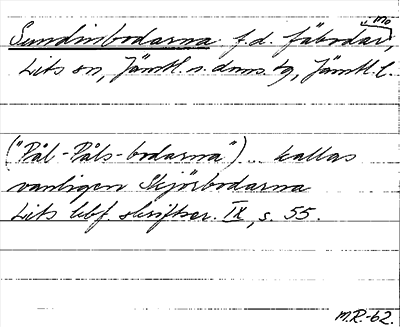 u. mo
Sundinbodarna f.d. fäbodar,
Lits sn, Jämtl. n. doms. tg, Jämtl. l.
("Pål-Påls-bodarna")... kallas
vanligen Kjörbodarna
Lits hbf. skriftser. IX, s. 55.
M.R.-62.